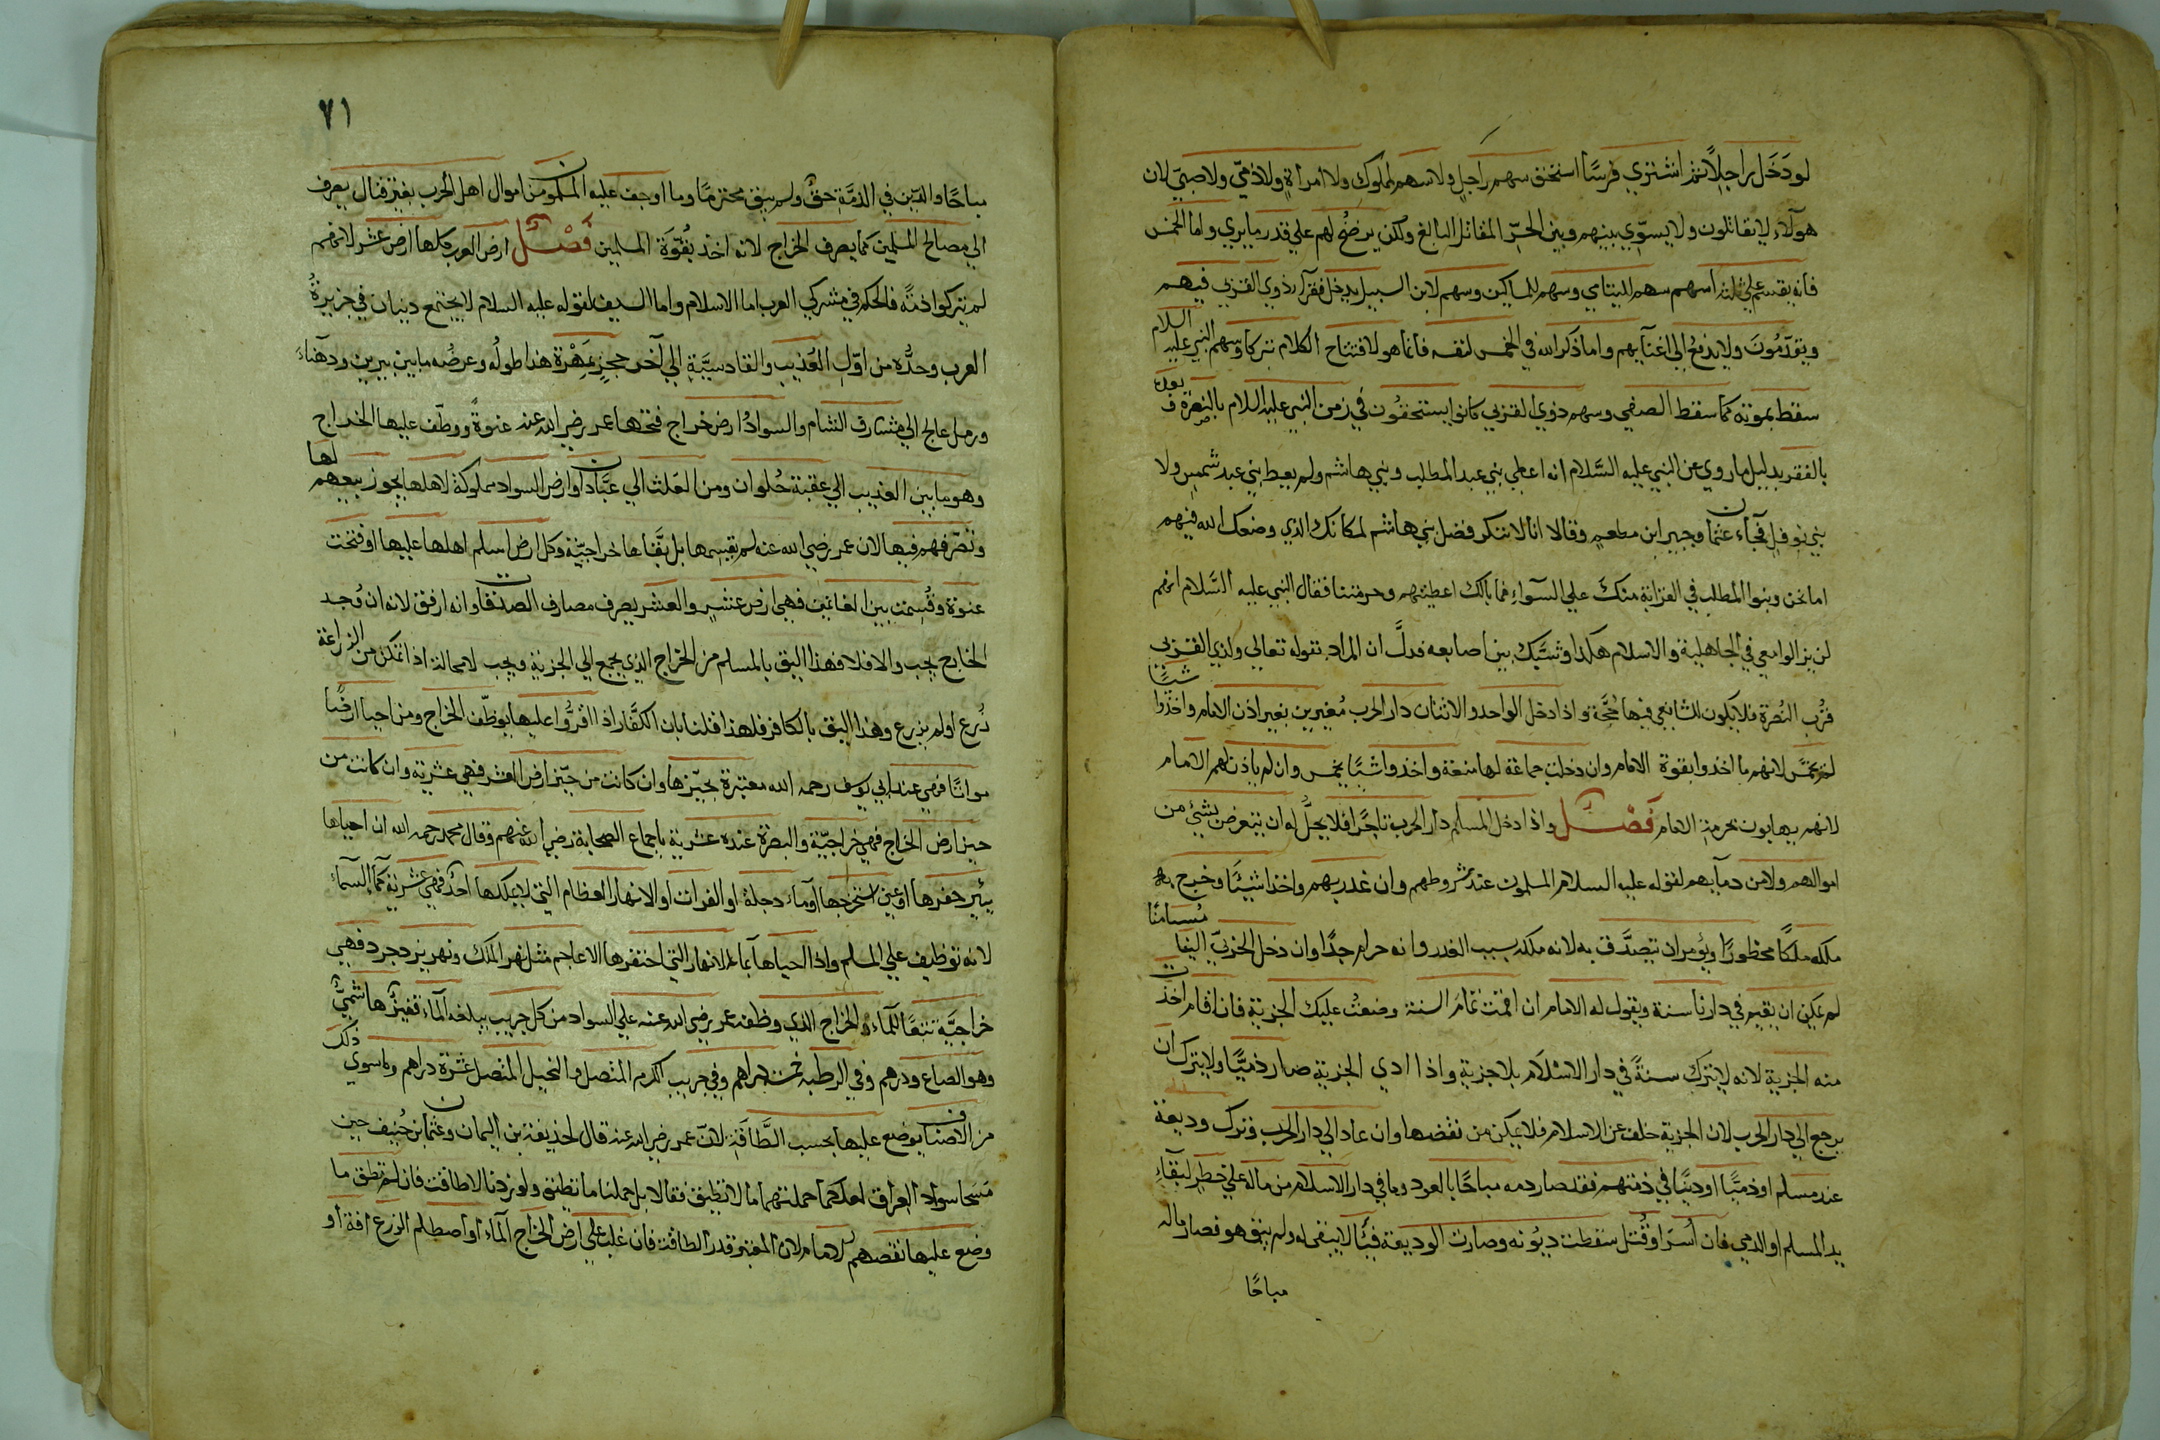 لو دَخَل راجلاً ثم اشتري فرسًا استحق سهم راجل ولا سهم لمملوك ولا امراة ولا ذمي ولا صبي لان
هولآء لا يقاتلون ولا يسوّي بينهم وبين الحرّ المقاتل البالغ ولكن يرضخ لهم علي قدر ما يري واما الخمس
فانه يقسم علي ثلثة اسهم سهم لليتامي وسهم للمساكين وسهم لابن السبيل يدخل فقرآء ذوي القربي فيهم
ويقدّمُونَ ولا يدفع الي اغنيآيهم واما ذكر الله في الخمس لنفسه فانما هو لافتتاح الكلام تبركا وسهم النبي عليه السلام
سقط بموته كما سقط الصفي وسهم ذوي القربي كانوا يستحقون في زمن النبي عليه السلام بالنصرة وبعده
بالفقر بدليل ما روي عن النبي عليه السَّلام انه اعطي بني عبد المطلب وبني هاشم ولم يعط بني عبد شمس ولا
بني نوفل فجآء عثمان وجبير ابن مطعم وقالا انا لا ننكر فضل بني هاشم لمكانك الذي وضعك الله فيهم
اما نحن وبنوا المطلب في القرابة منك علي السوآء فما بالك اعطيتهم وحرمتنا فقال النبي عليه السَّلام انهم
لن يزالوا معي في الجاهلية والاسلام هكذا وشبّك بين اصابعه فدلَّ ان المراد بقوله تعالي ولذي القربي
قُرب النُصرة فلا يكون للشافعي فيها حُجَّة واذا دخل الواحد والاثنان دار الحرب مُغيرين بغير اذن الامام واخذوا شيئًا
لم يخمّس لانهم ما اخذوا بقوة الامام وان دخلت جماعة لها منعة واخذوا شيئًا يخمس وان لم ياذن لهم الامام
لانهم يهابون بحرمة الامام فَصْل واذا دخل المسلم دار الحرب تاجرًا فلا يحلّ له ان يتعرض بشئ من
اموالهم ولا من دمآيهم لقوله عليه السلام المسلمون عند شروطهم وان غدر بهم واخذ شيئًا وخرج به
ملكه ملكًا محظورًا ويؤمر ان يتصدّق به لانه ملكه بسبب الغدر وانه حرام جدًا وان دخل الحربيّ الينا مُستامنًا
لم يمكن ان يقيم في دارنا سنة ويقول له الامام ان اقمت تمام السنة وضعتُ عليك الجزية فان اقام اخذت
منه الجزية لانه لا يترك سنةً في دار الاسْلام بلا جزية واذا ادي الجزية صار ذميًّا ولا يترك ان
يرجع الي دار الحرب لان الجزية خلف عن الاسلام فلا يمكن من نقضها وان عاد الي دار الحرب وترك وديعة
عند مسلم او ذميًّا او دينًا في ذمتهم فقد صار دمه مباحًا بالعود وما في دار الاسلام من ماله علي خطر لبقآء
يد المسلم او الذمي فان اُسرَ او قُتل سقطت ديونه وصارت الوديعة فيئًا لا يبقي له ولم يبق هو فصار ماله
مباحًا
٧١
مباحًا والدّين في الذمّة حقٌ ولم يبق محترمًا وما اوجف عليه المسلمون من اموال اهل الحرب بغير قتال يصرف
الي مصالح المسلمين كما يصرف الخراج لانه اخذ بقُوّة المسلمين فَصْل ارض العرب كلها ارض عشر لانهم
لم يتركوا ذمّة فالحكم في مشركي العرب اما الاسلام واما السيف لقوله عليه السلام لا يجتمع دينان في جزيرة
العرب وحدُّه من اوّل العُذيب والقادسيَّة الي آخر حجر بمَهْرة هذا طولُه وعرضُه ما بين يبرين ودهناء
ورمل عالج الي مشارق الشام والسوادُ ارض خراج فتحها عمر رضي الله عنه عنوةً ووظّف عليها الخراج
وهو ما بين العذيب الي عقبة حُلوان ومن العَلث الي عبّادان وارض السواد مملوكة لاهلها يجوز بيعهم لها
وتصرّفهم فيها لان عمر رضي الله عنه لم يقسمها بل بقَّاها خراجيّة وكل ارض اسلم اهلها عليها او فتحت
عنوة وقُسِمت بين الغانمين فهي ارض عشر والعشر يصرف مصارف الصدقات وانه ارفق لانه ان وُجد
الخارج يجب والا فلا فهذا اليق بالمسلم من الخراج الذي يجمع الي الجزية ويجب لا محالة اذا تمكن من الزراعة
زُرع او لم يزرع وهذا اليق بالكافر فلهذا قلنا بان الكفَّار اذا اقرُّوا عليها يوظّف الخراج ومن احيا ارضًا
مواتًا فهي عند ابي يوسف رحمه الله معتبرة بحيّزها وان كانت من حيّز ارض العشر فهي عشريّة وان كانت من
حيز ارض الخراج فهي خراجيّة والبصرة عنده عشرية باجماع الصحابة رضي الله عنهم وقال محمد رحمه الله ان احياها
ببئر حفرها او عين استخرجها او مآء دجلة او الفرات او الانهار العظام التي لا يملكها احدٌ فهي عشرية كمآء السمآء
لانه توظيف علي المسلم واذا احياها بمآء الانهار التي احتفرها الاعاجم مثل نهر الملك ونهر يزدجرد فهي
خراجيَّة تبعًا للمآء والخراج الذي وظفه عمر رضي الله عنه علي السواد من كل جريب يبلغه المآء قفيزٌ هاشميٌّ
وهو الصاع ودرهم وفي الرطبة خمسة دراهم وفي جريب الكرم المتصل والنخيل المتصل عشرة دراهم وما سوي ذلك
من الاصناف يوضع عليها بحسب الطَّاقة لانّ عمر رضي الله عنه قال لحذيفة بن اليمان وعثمان بن حُنيف حين
مَسَحا سواد العراق لعلّكما حملتهما ما لا تطيق فقالا بل حملنا ما تطيق ولو زدنا لاطاقت فان لم تطق ما
وضع عليها نقصهم الامام لان المعتبر قدر الطاقة فان غلب علي ارض الخراج المآء او اصطلم الزرع افة او